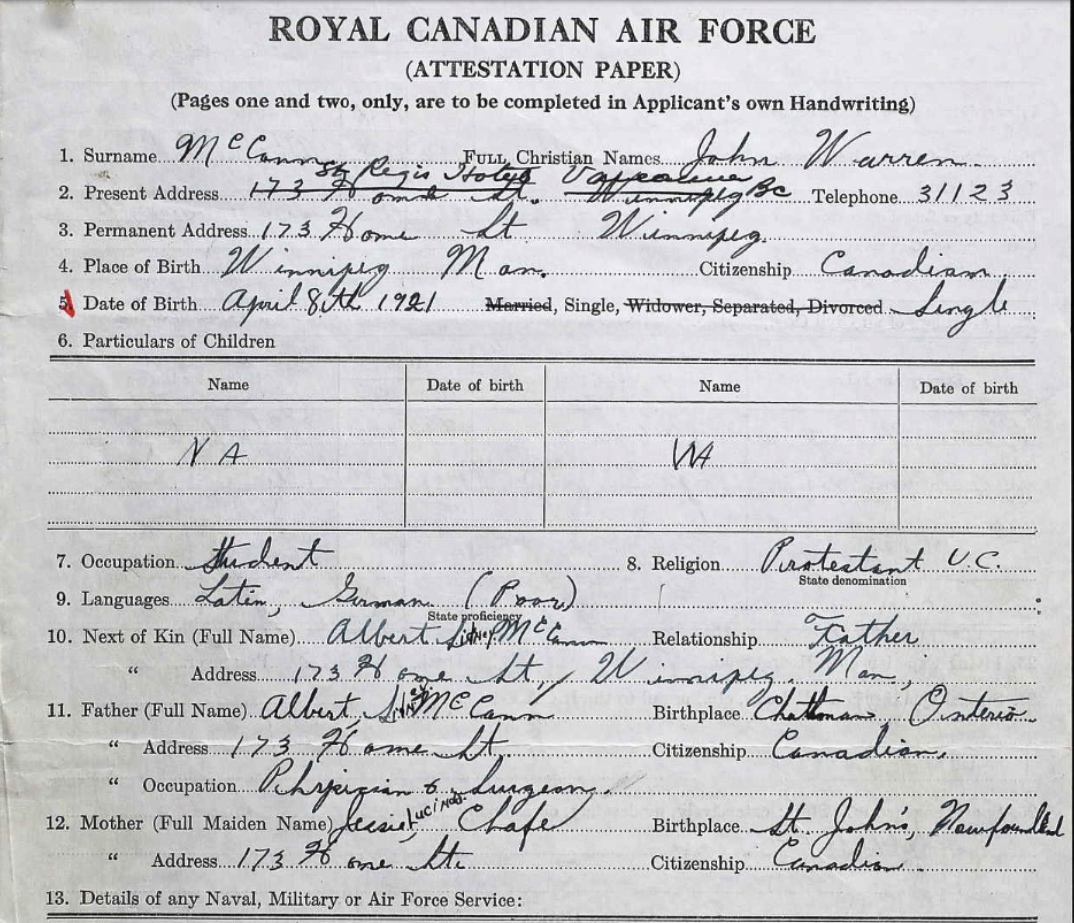 ROYAL CANADIAN AIR FORCE
(ATTESTATION PAPER)
(Pages one and two, only, are to be completed in Applicant's own Handwriting)
1. Surname McCann FULL Christian Names John Warren
St Regis Hotel Vancouver BC
2. Present Address 173 Home St. Winnipeg Telephone 31123
3. Permanent Address 173 Home St Winnipeg.
4. Place of Birth Winnipeg Man. Citizenship Canadian
5. Date of Birth April 8th 1921 Married, Single, Widower, Separated, Divorced Single
6. Particulars of Children
Name Date of birth Name Date of birth
NA NA
7. Occupation Student 8. Religion Protestant U.C.
State denomination
9. Languages Latin, German (Poor)
State proficiency
10. Next of Kin (Full Name) Albert McCann Relationship Father
" Address 173 Home St, Winnipeg. Man.,
11. Father (Full Name) Albert, McCann Birthplace Ontario
" Address 173 Home St. Citizenship Canadian.
" Occupation Physician & Surgeon.
12. Mother (Full Maiden Name) Jessie Lucinda Chafe Birthplace St. John's, Newfoundland
" Address 173 Home St. Citizenship Canadian
13. Details of any Naval, Military or Air Force Service: